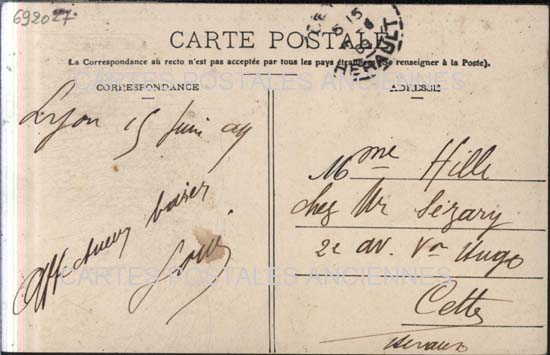 692027
CARTE POSTALE
(La Correspondance au recto n'est pas acceptée par tous les pays étrangers. Se renseigner à la Poste).
CORRESPONDANCE
ADRESSE
Lyon 15 Juin 09
Affectueux baiser
Mme Hille
chez Mr Sézary
2e av. Vor Hugo
Cette
HERAULT
CARTES POSTALES ANCIENNES
CARTES POSTALES ANCIENNES